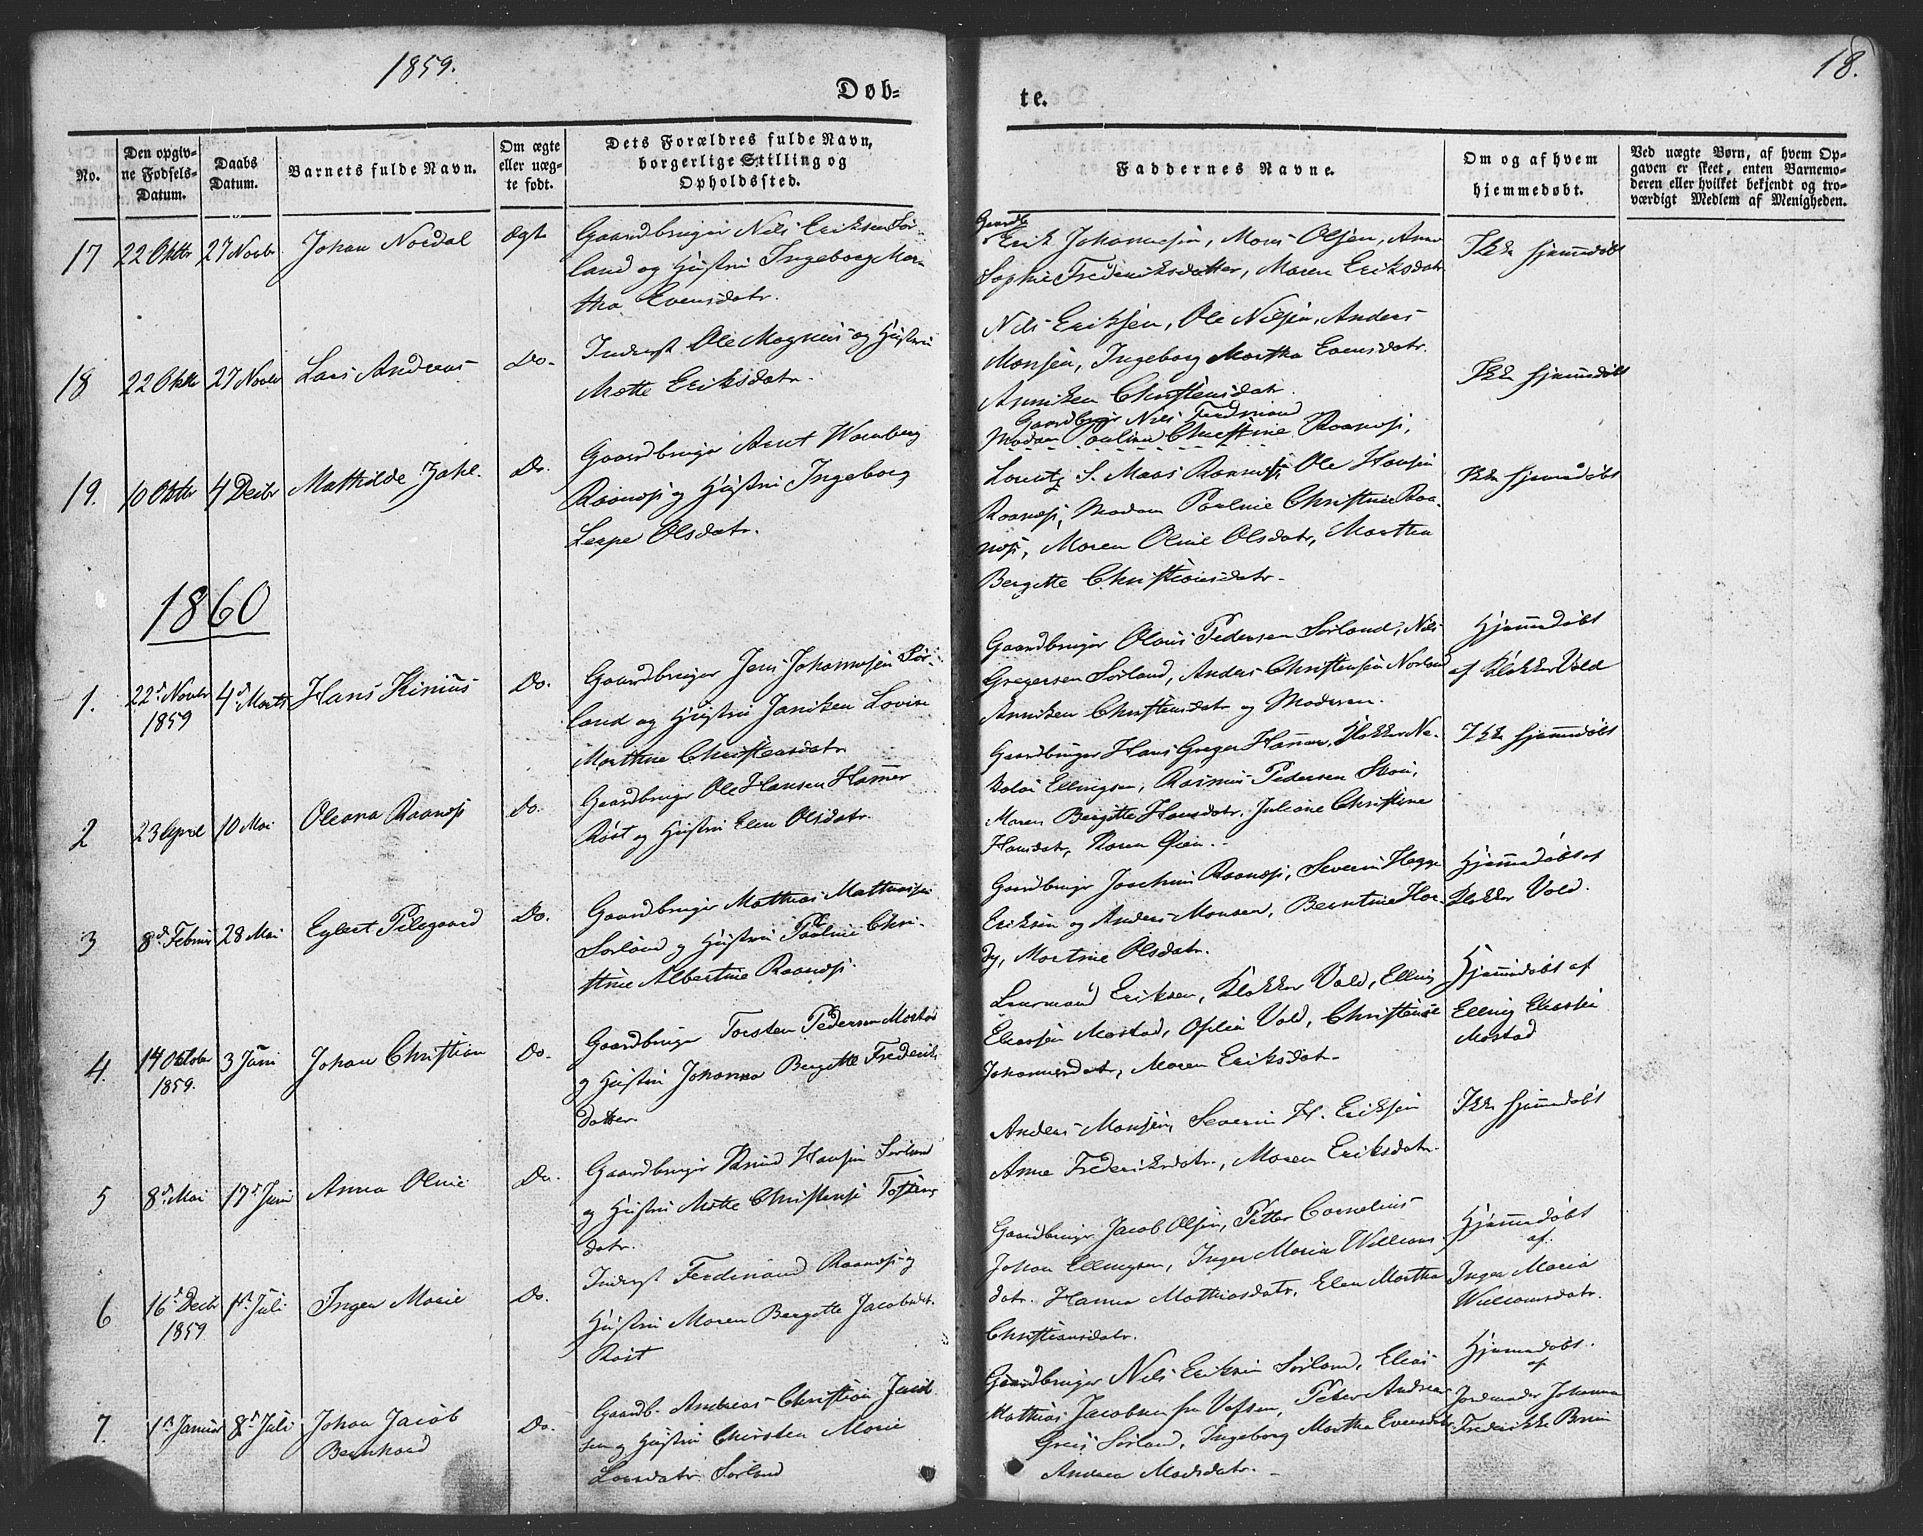 1859.
18.
Døb=
te.
No.
Den opgiv-
ne Fødsels-
Datum.
Daabs
Datum.
Barnets fulde Navn.
Om ægte
eller uæg-
te født.
Dets Forældres fulde Navn,
borgerlige Stilling og
Opholdssted.
Faddernes Navne.
Om og af hvem
hjemmedøbt.
Ved uægte Børn, af hvem Op-
gaven er skeet, enten Barnemo-
deren eller hvilket bekjendt og tro-
værdigt Medlem af Menigheden.
17 22 Oktbr 27 Novbr Johan Nordal Ægt
Gaardbruger Nils Eriksen Sør-
land og Hustru Ingeborg Mar-
tha Evensdatr.
Erik Johannesen, Mons Olsen, Anne
Sophie Frederiksdatter, Maren Eriksdatr
Ikke hjemmedøbt
18 22 Oktbr 27 Novbr Lars Andreas Do.
Inderst Ole Magnus og Hustru
Mette Eriksdatr.
Nils Eriksen, Ole Nilsen, Anders
Monsen, Ingeborg Martha Evensdatr.
Anniken Christensdatr
Ikke hjemmedøbt
19. 10 Oktbr 4 Decbr Mathilde Zahl. Do.
Gaardbruger Arnt
Raanæs og Hustru Ingeborg
Olsdatr.
Gaardbrugr Nils Ferdinand
Madam Pauline Christine Raanæs,
Lorentz S. Maas Raanæs, Ole Hansen
Raanæs, Madam Pauline Christine Raa-
næs, Maren Oline Olsdatr, Martha
Bergitte Christiansdatr.
Ikke hjemmedøbt
1860
1. 22d Novbr 1859 4d Marts Hans Kinius Do.
Gaardbruger Jens Johannesen Sør-
land og Hustru Janiken Lovise
Marthine Christensdatr
Gaardbruger Olaus Pedersen Sørland, Nils
Gregersen Sørland, Anders Christensen Norland
Anniken Christensdatr og Moderen.
Hjemmedøbt
af Klokker Vold
2 23 April 10 Mai Oleana Raanæs Do.
Gaardbruger Ole Hansen Hamer
Røst og Hustru Elen Olsdatr.
Gaardbruger Hans Greger Hamer, Klokker Ni-
kolai Ellingsen, Rasmus Pedersen
Maren Birgitte Hansdatr, Juliane Christine
Hansdatr, Karen
Ikke hjemmedøbt
3 8d Februar 28 Mai Eylert Pilegaard Do.
Gaardbruger Mathias Mathiesen
Sørland og Hustru Pauline Chri-
stine Albertine Raanæs.
Gaardbruger Joachim Raanæs, Severin Hegge
Eriksen og Anders Monsen, Berntine Har-
dy, Martine Olsdatr.
Hjemmedøbt af
Klokker Vold.
4. 14 Oktober 1859. 3 Juni Johan Christian Do.
Gaardbruger Torsten Pedersen Mostad
og Hustru Johanna Bergitte Frederik-
datter.
Eriksen, Klokker Vold, Elling
Eliassen Mostad, Vold, Christense
Johannesdatr, Maren Eriksdatr.
Hjemmedøbt af
Elling Eliassen
Mostad
5 8d Mai 17d Juni Anna Oline Do.
Gaardbruger Knud Hansen Sørland
og Hustru Mette Christense
datr.
Anders Monsen, Severin H. Eriksen
Anne Frederiksdatr., Maren Eriksdatr.
Ikke hjemmedøbt
6 16d Decbr 1859 1st Juli Inger Marie Do.
Inderst Ferdinand Raanæs og
Hustru Maren Bergitte Jacobsdatr.
Røst
Gaardbruger Jacob Olsen, Petter Cornelius
Johan Ellingsen, Inger Maria Williams-
datr. Hanna Mathiasdatr, Elen Martha
Christiansdatr.
Hjemmedøbt
af
Inger Maria
Williamsdatr.
7. 1st Januar 8d Juli Johan Jacob
Bernhard Do.
Gaardb. Andreas Christian Jacob-
sen og Hustru Chirsten Marie
Larsdatr Sørland
Gaardbruger Nils Eriksen Sørland, Elias
Mathias Jacobsen fra Vefsen, Peter Andreas
Greis Sørland, Ingeborg Martha Evensdatr
Andrea Madsdatr.
Hjemmedøbt.
af
Jordmoder Johanna
Frederikke Bruun